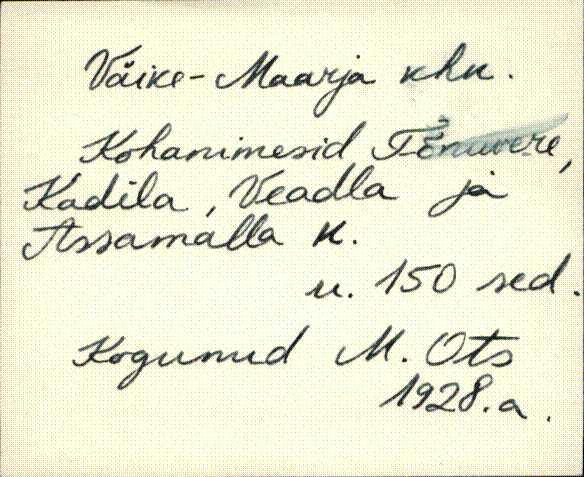 Väike-Maarja khk.
Kohanimesid Tõnuvere,
Kadila, Veadla ja
Assamalla k.
u. 150 sed.
Kogunud M. Ots
1928.a.